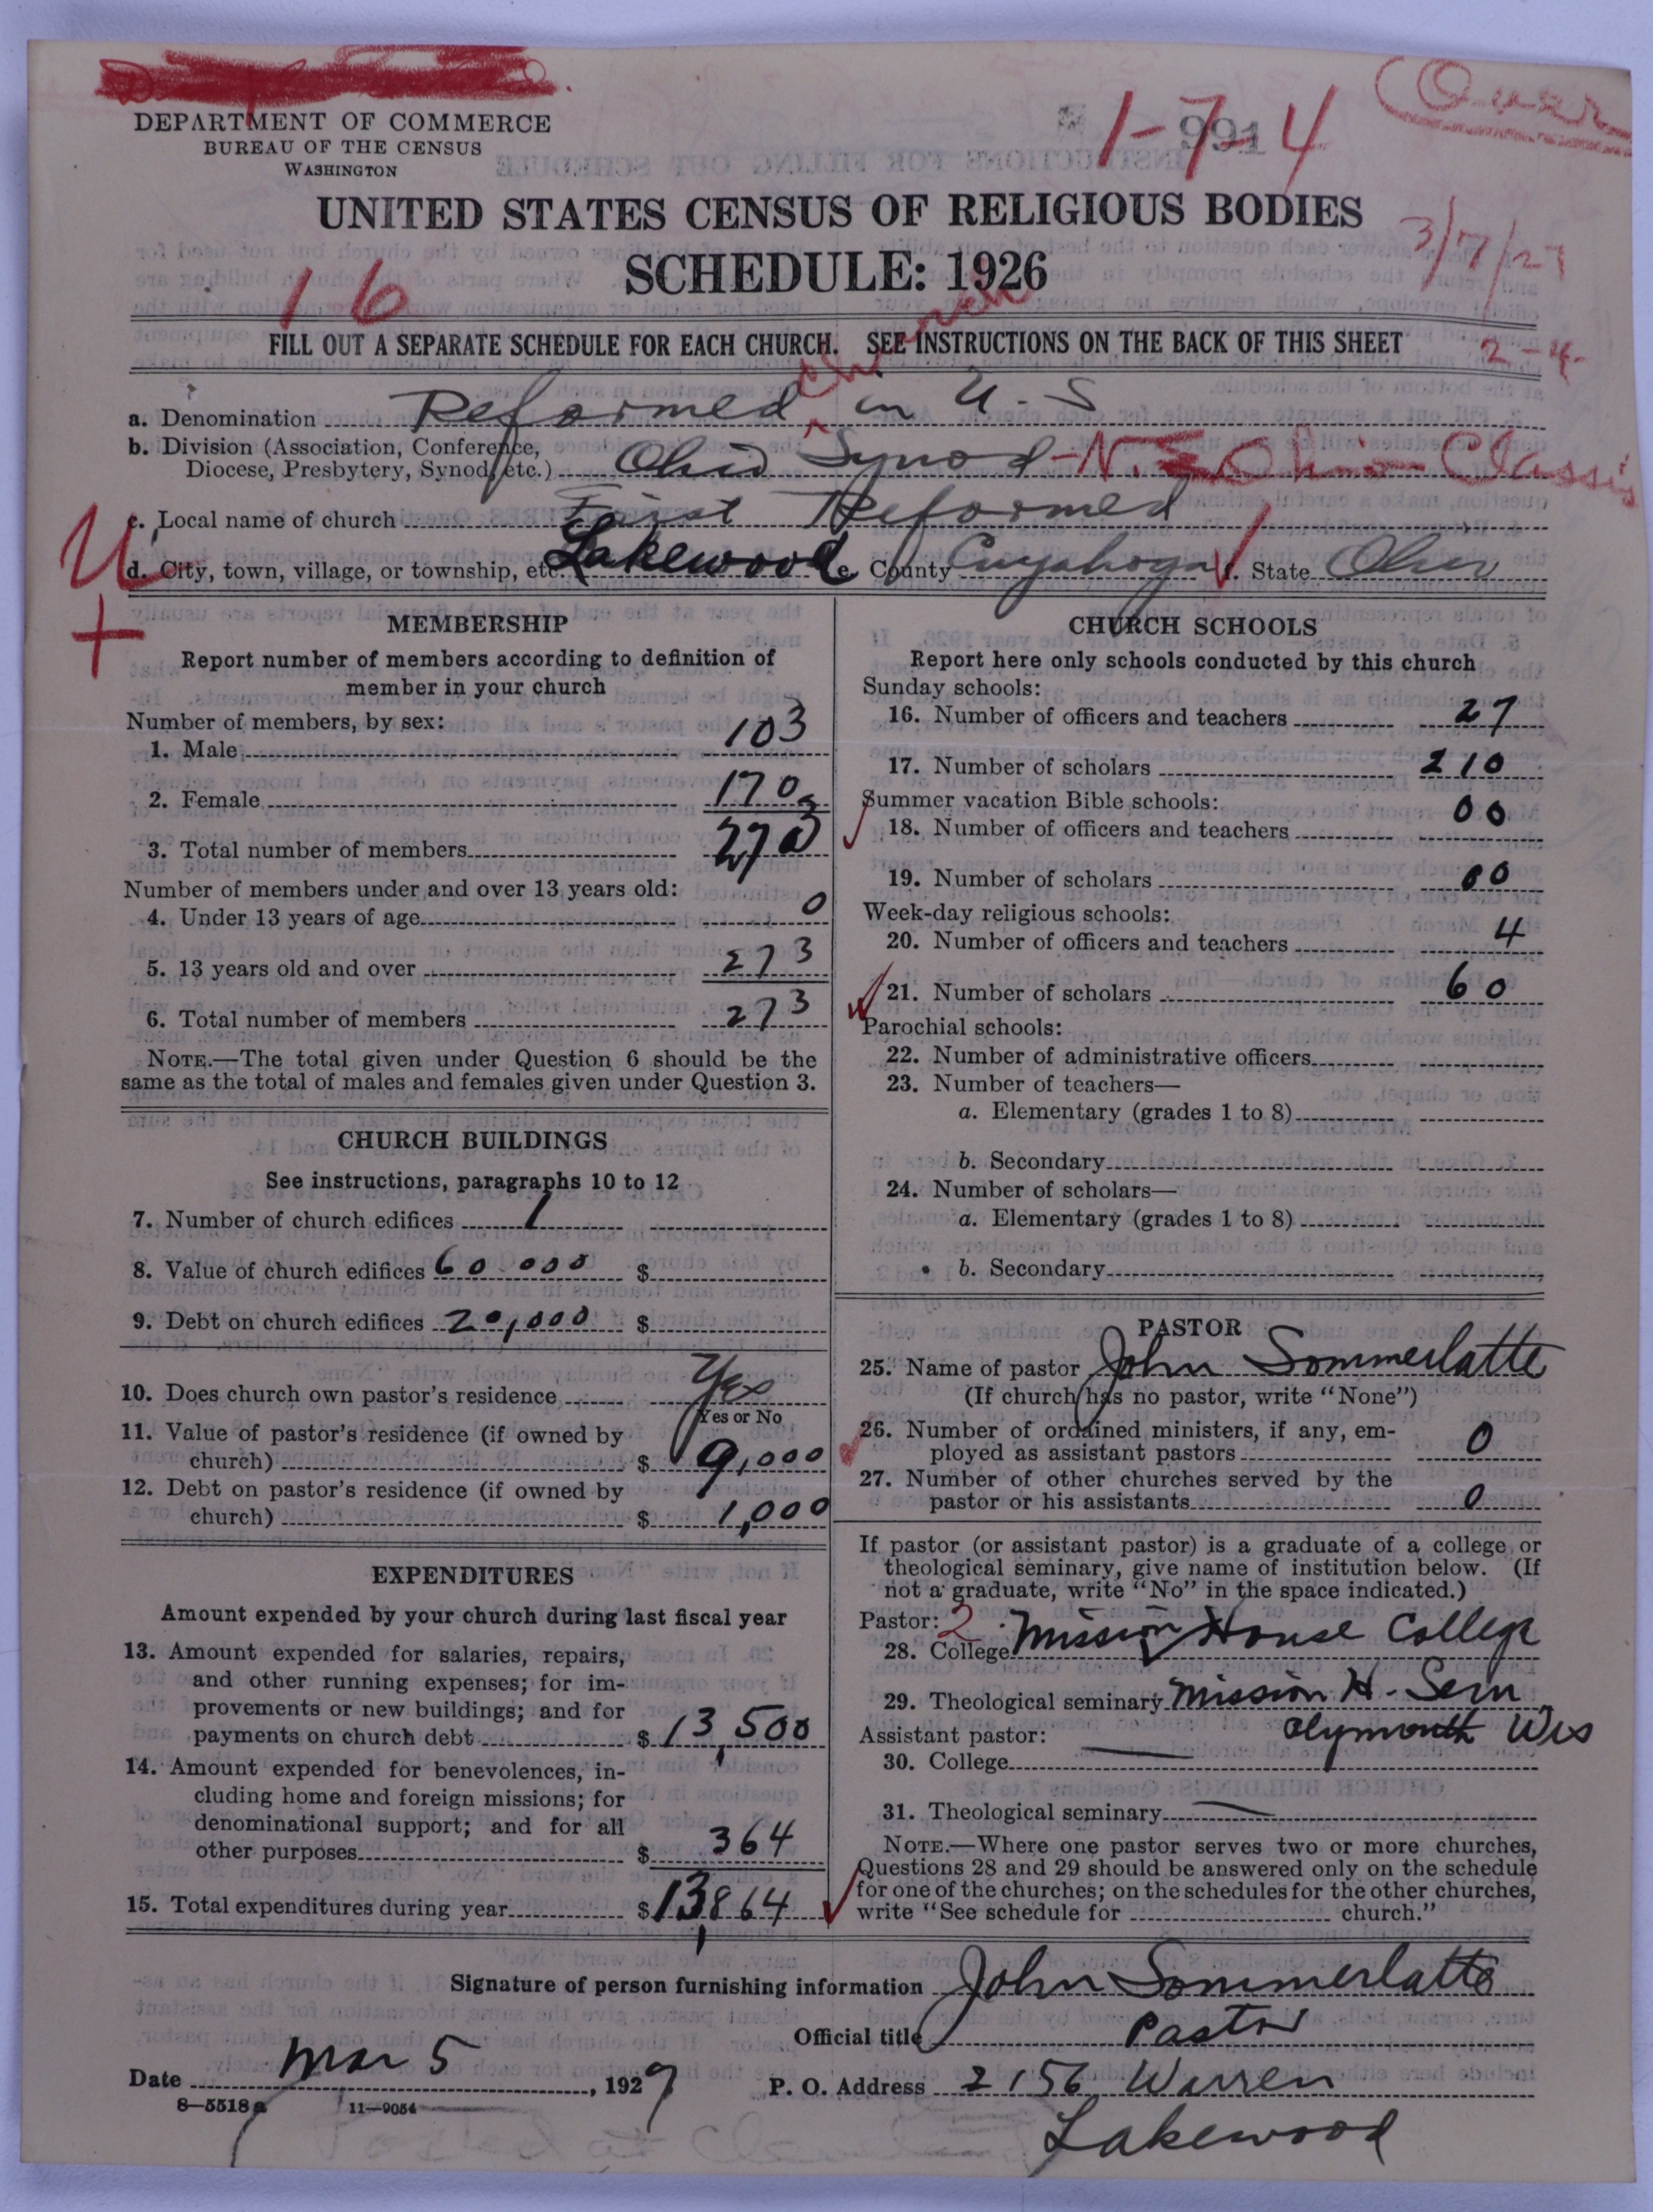 1-7-4
991
Over
DEPARTMENT OF COMMERCE
BUREAU OF THE CENSUS
WASHINGTON
UNITED STATES CENSUS OF RELIGIOUS BODIES
SCHEDULE: 1926
3/7/27
16
FILL OUT A SEPARATE SCHEDULE FOR EACH CHURCH. SEE INSTRUCTIONS ON THE BACK OF THIS SHEET
2-4-
a. Denomination Reformed Church in U.S
b. Division (Association, Conference,
Diocese, Presbytery, Synod, etc.) Ohio Synod - N.E. Ohio - Classis
c. Local name of church First Reformed
U
d. City, town, village, or township, etc. Lakewood e. County Cuyahoga f. State Ohio
+
MEMBERSHIP
Report number of members according to definition of
member in your church
Number of members, by sex:
1. Male 103
2. Female 170
3. Total number of members 273
Number of members under and over 13 years old:
4. Under 13 years of age 0
5. 13 years old and over 273
6. Total number of members 273
NOTE.—The total given under Question 6 should be the
same as the total of males and females given under Question 3.
CHURCH BUILDINGS
See instructions, paragraphs 10 to 12
7. Number of church edifices 1
8. Value of church edifices 60 000 $
9. Debt on church edifices 20,000 $
10. Does church own pastor's residence Yes
Yes or No
11. Value of pastor's residence (if owned by
church) $ 9,000
12. Debt on pastor's residence (if owned by
church) $ 1,000
EXPENDITURES
Amount expended by your church during last fiscal year
13. Amount expended for salaries, repairs,
and other running expenses; for im-
provements or new buildings; and for
payments on church debt $ 13,500
14. Amount expended for benevolences, in-
cluding home and foreign missions; for
denominational support; and for all
other purposes $ 364
15. Total expenditures during year $ 13,864
CHURCH SCHOOLS
Report here only schools conducted by this church
Sunday schools:
16. Number of officers and teachers 27
17. Number of scholars 210
Summer vacation Bible schools:
18. Number of officers and teachers 00
19. Number of scholars 00
Week-day religious schools:
20. Number of officers and teachers 4
21. Number of scholars 60
Parochial schools:
22. Number of administrative officers
23. Number of teachers—
a. Elementary (grades 1 to 8)
b. Secondary
24. Number of scholars—
a. Elementary (grades 1 to 8)
b. Secondary
PASTOR
25. Name of pastor John Sommerlatte
(If church has no pastor, write "None")
26. Number of ordained ministers, if any, em-
ployed as assistant pastors 0
27. Number of other churches served by the
pastor or his assistants 0
If pastor (or assistant pastor) is a graduate of a college or
theological seminary, give name of institution below. (If
not a graduate, write "No" in the space indicated.)
Pastor: 2
28. College Mission House College
29. Theological seminary Mission H. Sem
Plymouth Wis
Assistant pastor:
30. College
31. Theological seminary
NOTE.—Where one pastor serves two or more churches,
Questions 28 and 29 should be answered only on the schedule
for one of the churches; on the schedules for the other churches,
write "See schedule for church."
Signature of person furnishing information John Sommerlatte
Official title Pastor
Date Mar 5, 1927
P. O. Address 2156 Warren
Lakewood
8-5518a 11-9054